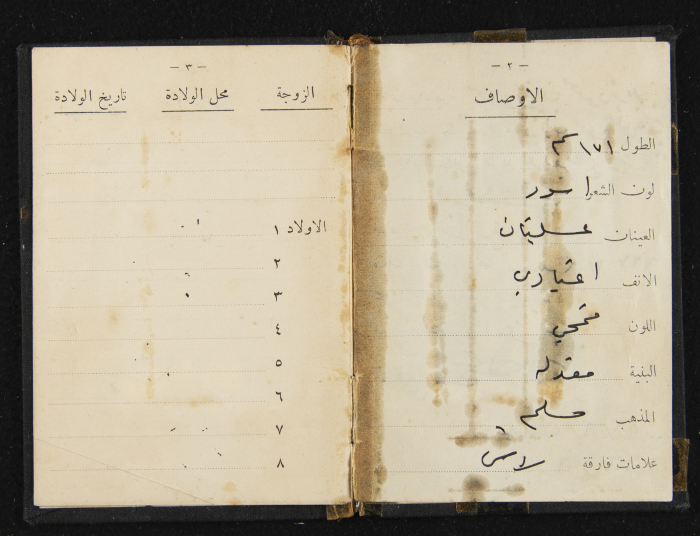 - ٢ -
الاوصاف
الطول ١٧١ سم
لون الشعر اسود
العينان عسليتان
الانف اعتيادي
اللون قمحي
البنية معتدله
المذهب مسلم
علامات فارقة
- ٣ -
الزوجة محل الولادة تاريخ الولادة
الاولاد ١
٢
٣
٤
٥
٦
٧
٨